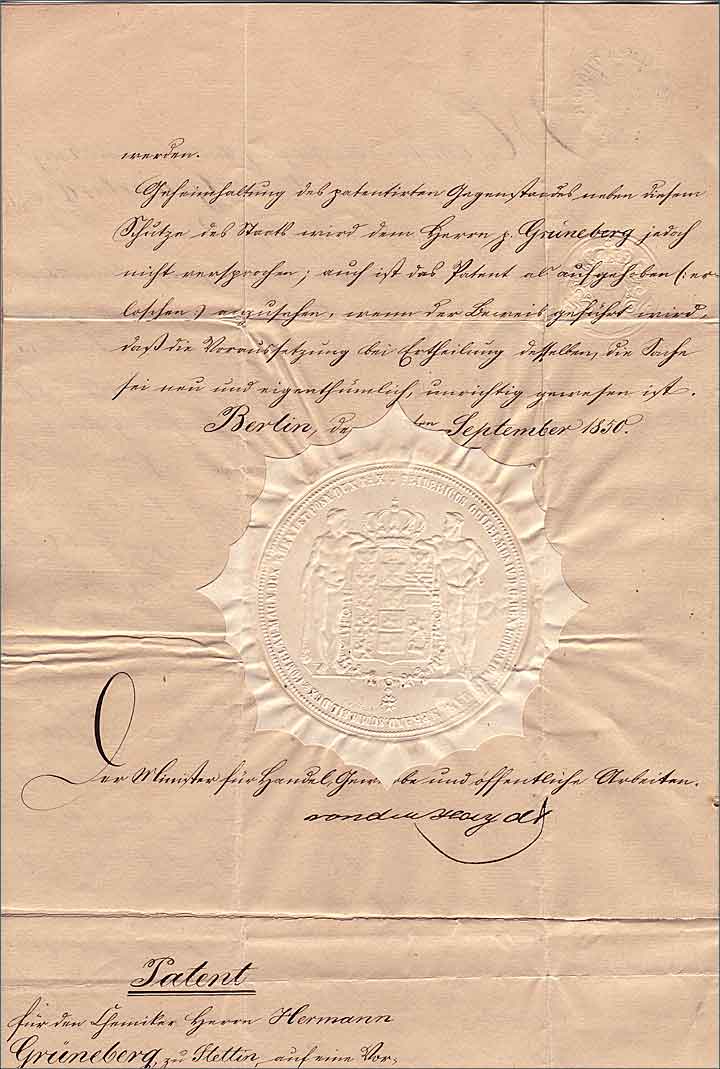 werden.
Geheimhaltung des patentirten Gegenstandes neben diesem
Schutze des Staats wird dem Herrn p. Grüneberg jedoch
nicht versprochen; auch ist das Patent als aufgehoben (: er-
loschen :) anzusehen, wenn der Beweis geführt wird,
daß die Voraussetzung bei Ertheilung desselben, die Sache
sei neu und eigenthümlich, unrichtig gewesen ist.
Berlin, de ten September 1850.
FRIDERICUS GUILELMUS
Der Minister für Handel, Gewerbe und öffentliche Arbeiten.
von der Heydt
Patent
für den Chemiker Herrn Hermann
Grüneberg, zu Stettin, auf eine Vor-